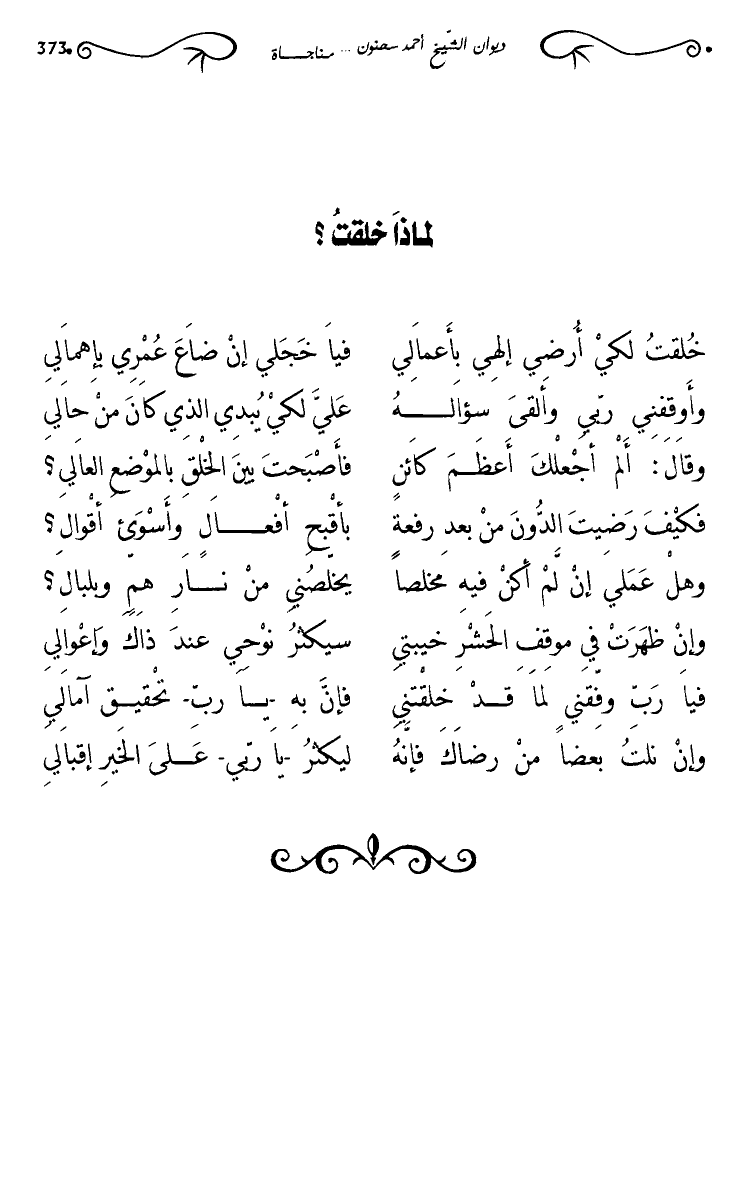 ديوان الشّيخ أحمد سحنون ... مناجـــاة 373
لماذاَ خلقتُ ؟
خُلقتُ لكيْ أُرضي إلهي بأَعمالَي فياَ خَجَلي إنْ ضاعَ عُمْرِي بإهمالَي
وأَوقفنِي ربّي وألقىَ سؤالـــــهُ عَليَّ لكيْ يُبدي الذي كانَ منْ حالَي
وقالَ: أَلمْ أجْعلْكَ أَعظـمَ كائنٍ فأَصْبَحتَ بينَ الخْلقِ بالموْضعِ العالَي؟
فكيْفَ رَضيتَ الدُّونَ منْ بعدِ رفعةٍ بأقْبحِ أفْعـــــالٍ وأَسْوَئِ أقْوالِ؟
وهلْ عَمَلي إنْ لَّمْ أكنْ فيه مخلصاً يخلصُنِي منْ نـــارِ همّ وبلبالِ؟
وإنْ ظهَرَتْ فيِ موقفِ الحَشْرِ خيبتِي سيكثرُ نوْحِي عندَ ذاكَ وَإعْوالِي
فياَ رَبّ وفّقني لماَ قـــدْ خلقْتنِي فإنَّ به -يـــا ربّ- تحْقيـق آمالَي
وإنْ نلتُ بعضاً منْ رضاكَ فإنَّهُ ليكثرُ -ياَ ربّي- عَـــلىَ الخيرِ إقبالَي